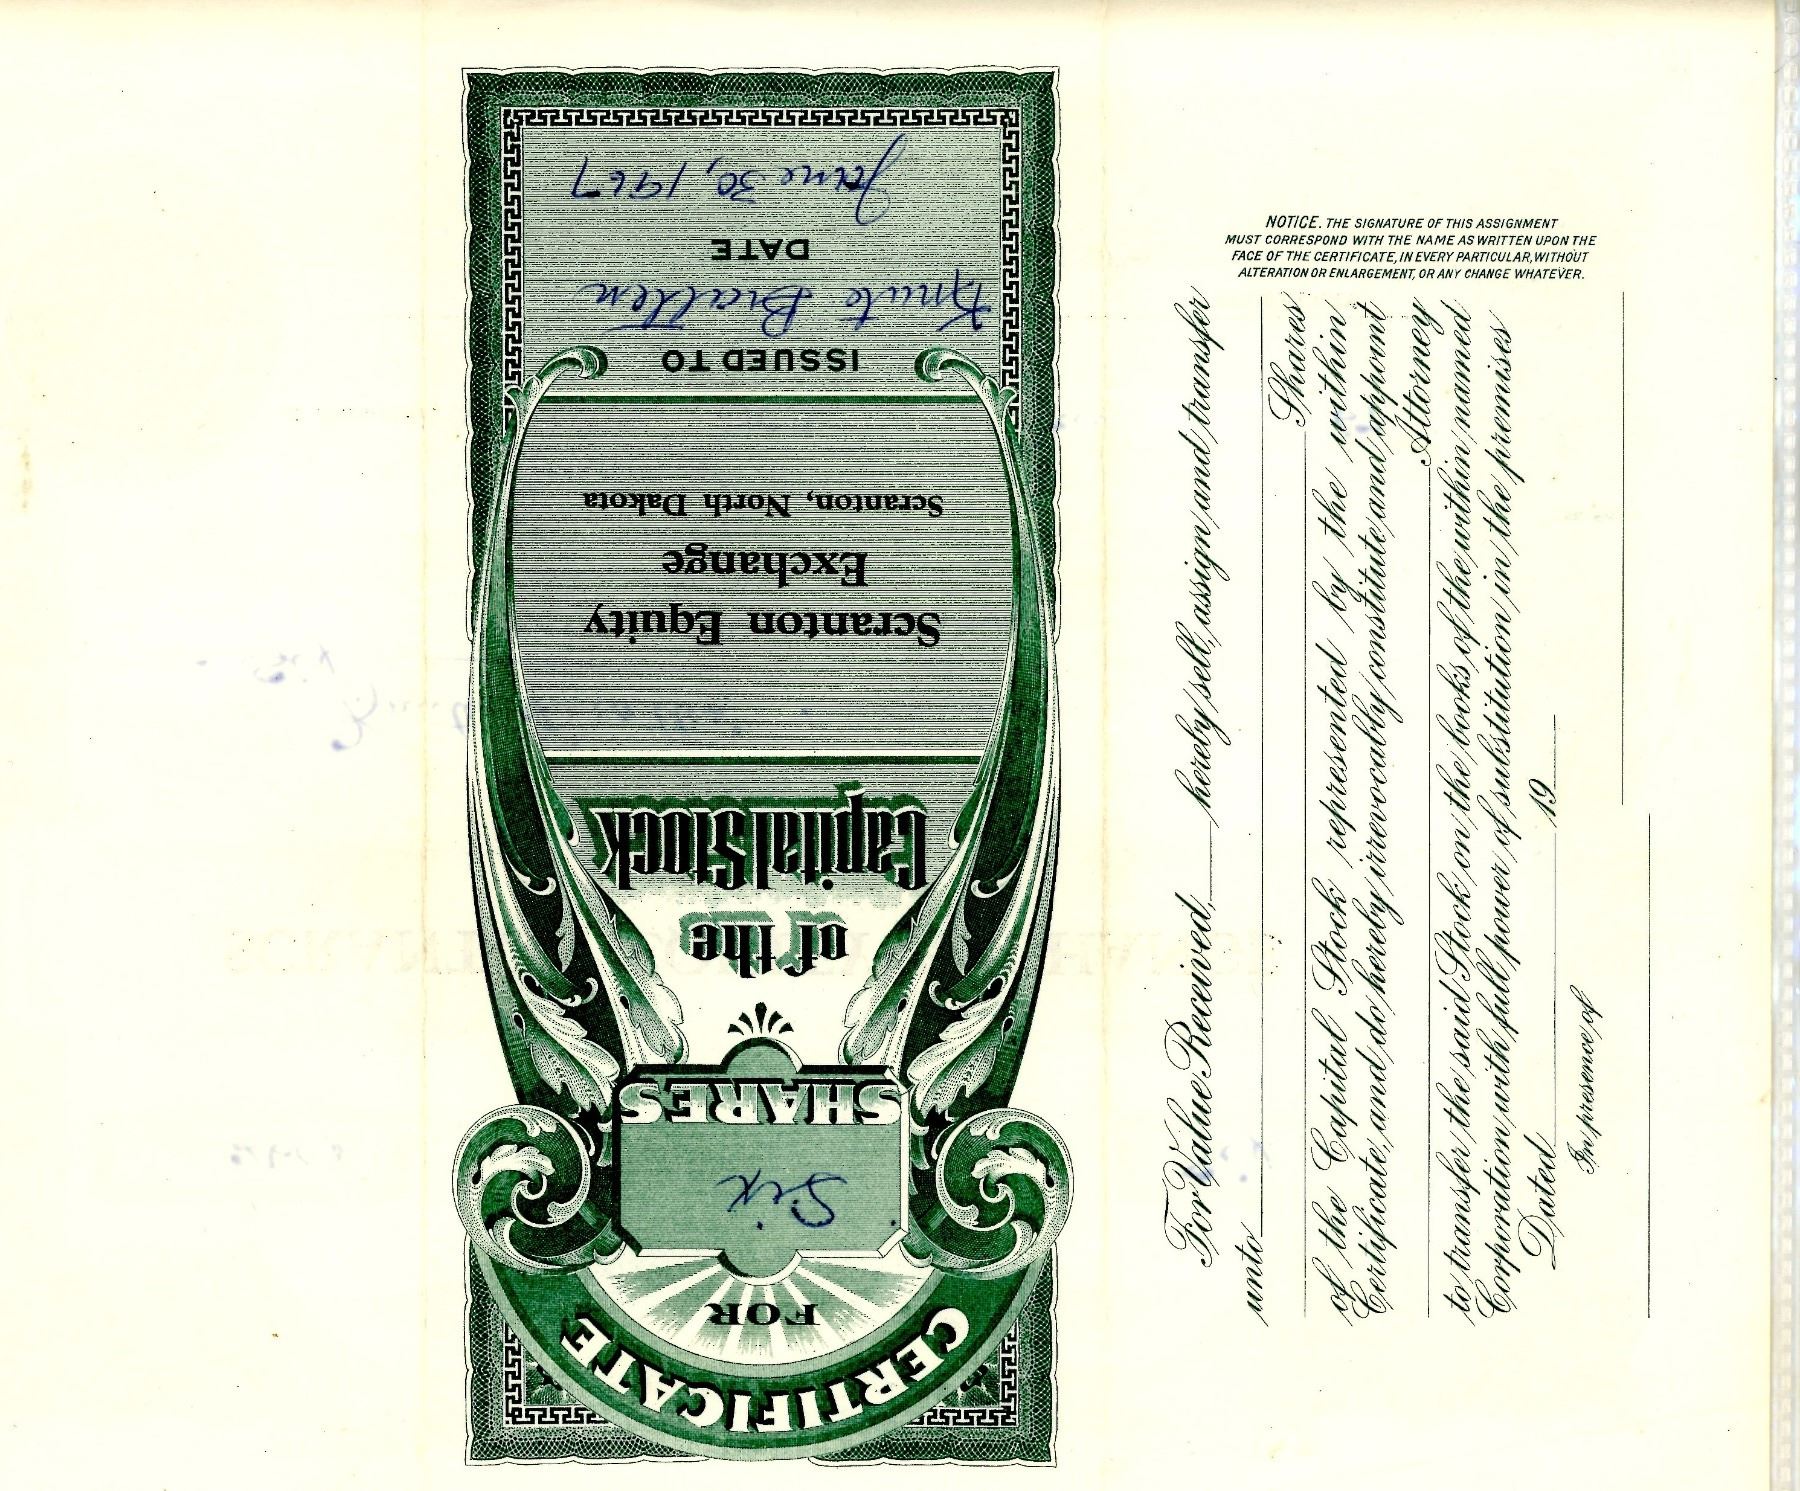 CERTIFICATE
FOR
Six
SHARES
of the
Capital Stock
Scranton Equity
Exchange
Scranton, North Dakota
ISSUED TO
Knute Bratten
DATE
June 30, 1967
For Value Received, hereby sell, assign and transfer
unto
Shares
of the Capital Stock represented by the within
Certificate, and do hereby irrevocably constitute and appoint
Attorney
to transfer the said Stock on the books of the within named
Corporation with full power of substitution in the premises
Dated 19
In presence of
NOTICE. THE SIGNATURE OF THIS ASSIGNMENT
MUST CORRESPOND WITH THE NAME AS WRITTEN UPON THE
FACE OF THE CERTIFICATE, IN EVERY PARTICULAR, WITHOUT
ALTERATION OR ENLARGEMENT, OR ANY CHANGE WHATEVER.